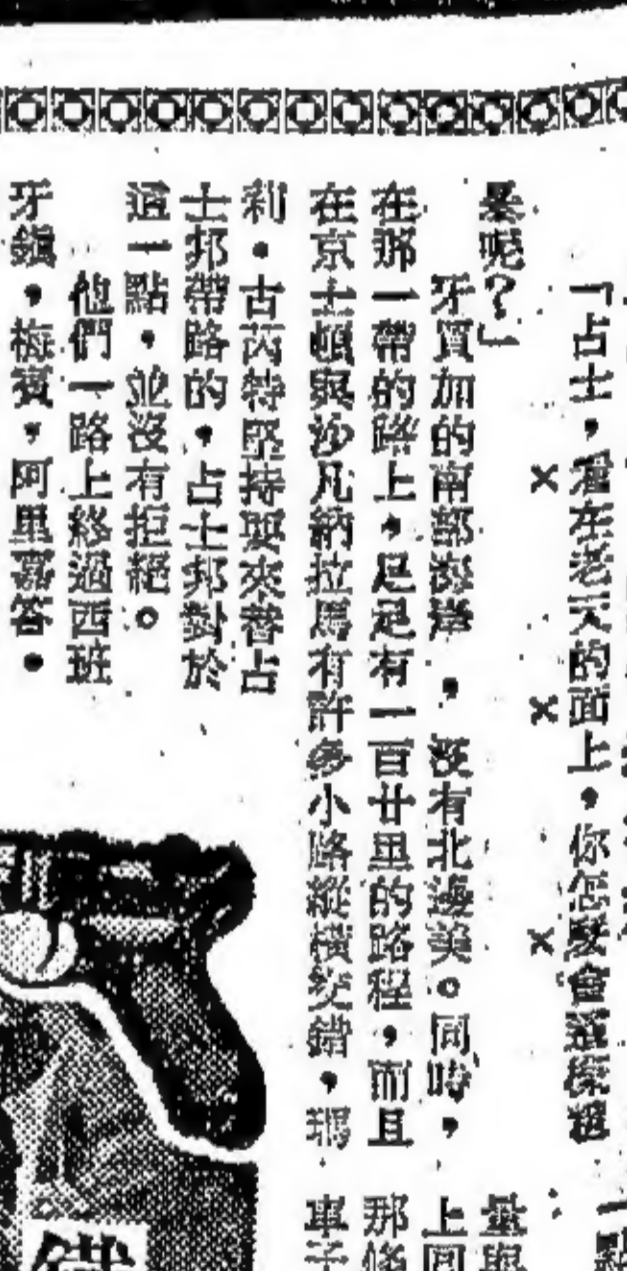 「占士,看在老天的面上,你怎麼會這樣
呢?」
× × ×
牙買加的南部海岸,沒有北邊美。同時,
在那一帶的路上,足足有一百廿里的路程,而且
在京士頓與沙凡納拉馬有許多小路縱橫交錯,瑪
利·古芮特堅持要來替占
士邦帶路的,占士邦對於
這一點,並沒有拒絕。
他們一路上經過西班
牙鎮,梅賓,阿里嘉答·
一點
量與
上回
那條
車子
鐵